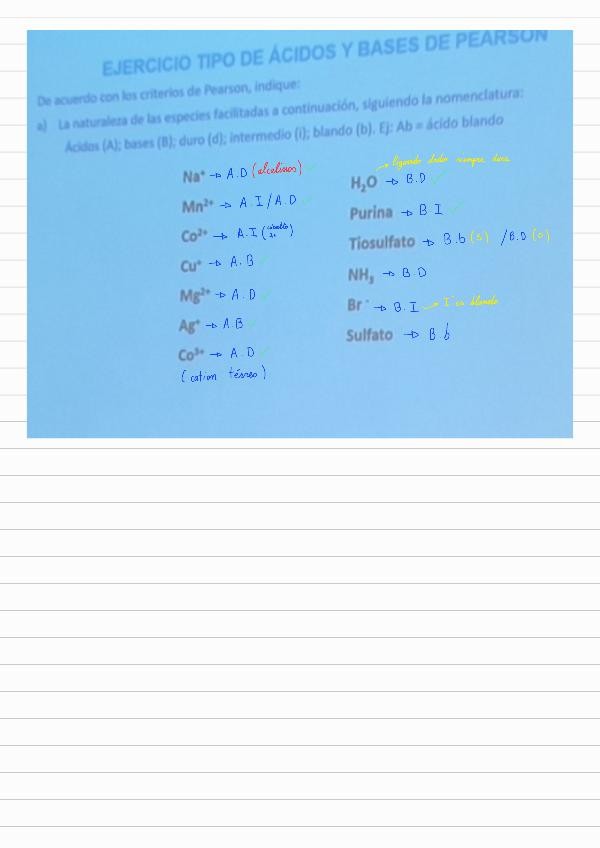 EJERCICIO TIPO DE ÁCIDOS Y BASES DE PEARSON
De acuerdo con los criterios de Pearson, indique:
a) La naturaleza de las especies facilitadas a continuación, siguiendo la nomenclatura:
Ácidos (A); bases (B); duro (d); intermedio (i); blando (b). Ej: Ab = ácido blando
Na⁺ → A.D (alcalinos)
Mn²⁺ → A.I/A.D
Co²⁺ → A.I (
Cu⁺ → A.B
Mg²⁺ → A.D
Ag⁺ → A.B
Co³⁺ → A.D
(cation térreo)
→ ligando dador siempre dura
H₂O → B.D
Purina → B.I
Tiosulfato → B.b (s) / B.D (o)
NH₃ → B.D
Br⁻ → B.I → I⁻ es blando
Sulfato → B.b